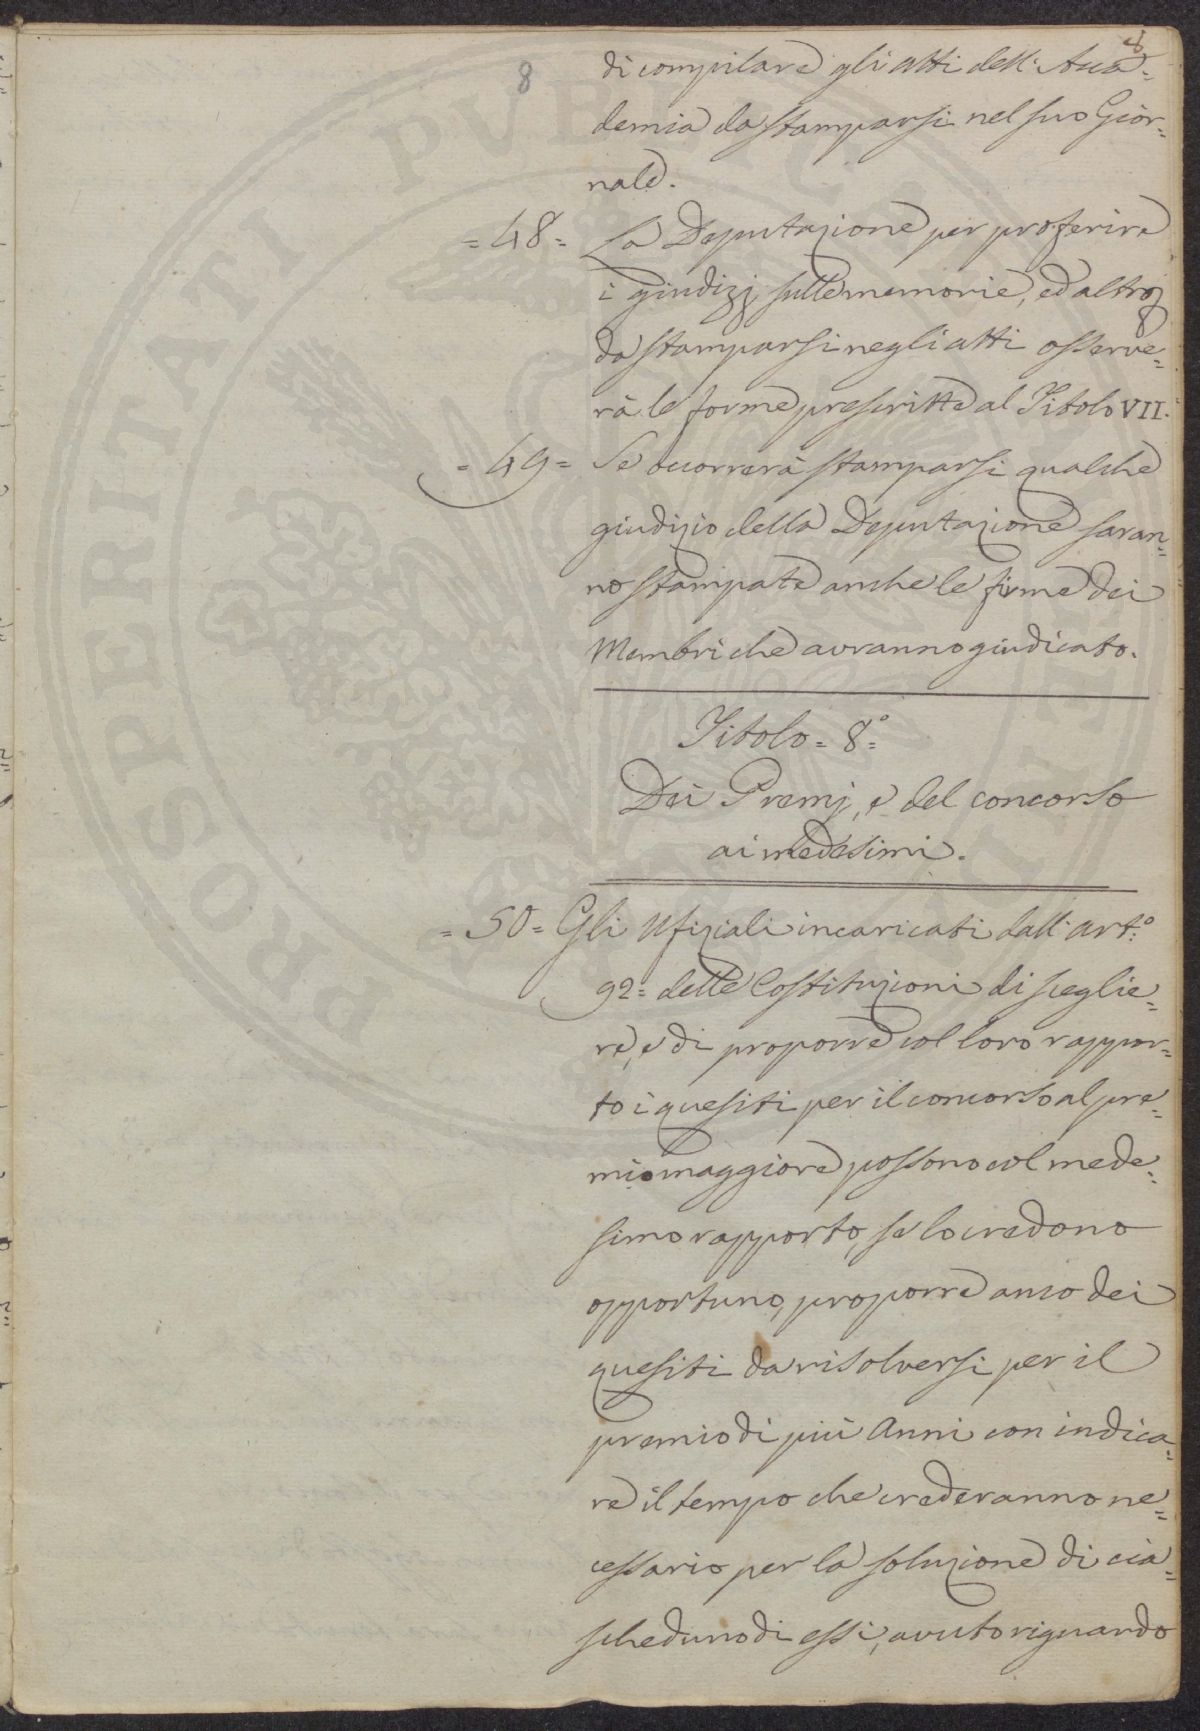 8
8
di compilare gli atti dell' Acca=
demia da stamparsi nel suo Gior=
nale.
= 48 = La Deputazione per proferire
i giudizj sulle memorie, ed altro
da stamparsi negli atti osserve=
rà le forme prescritte al Titolo VII.
= 49 = Se occorrerà stamparsi qualche
giudizio della Deputazione saran=
no stampate anche le firme dei
Membri che avranno giudicato.
Titolo = 8°=
Dei Premj, e del concorso
ai medesimi.
= 50 = Gli Ufiziali incaricati dall' art.°
92= delle Costituzioni di sceglie=
re, e di proporre col loro rappor=
to i quesiti per il concorso al pre=
mio maggiore possono col mede=
simo rapporto, se lo credono
opportuno, proporre anco dei
quesiti da risolversi per il
premio di più Anni con indica=
re il tempo che crederanno ne=
cessario per la soluzione di cia=
scheduno di essi, avuto riguardo
PROSPERITATI PUBLICAE